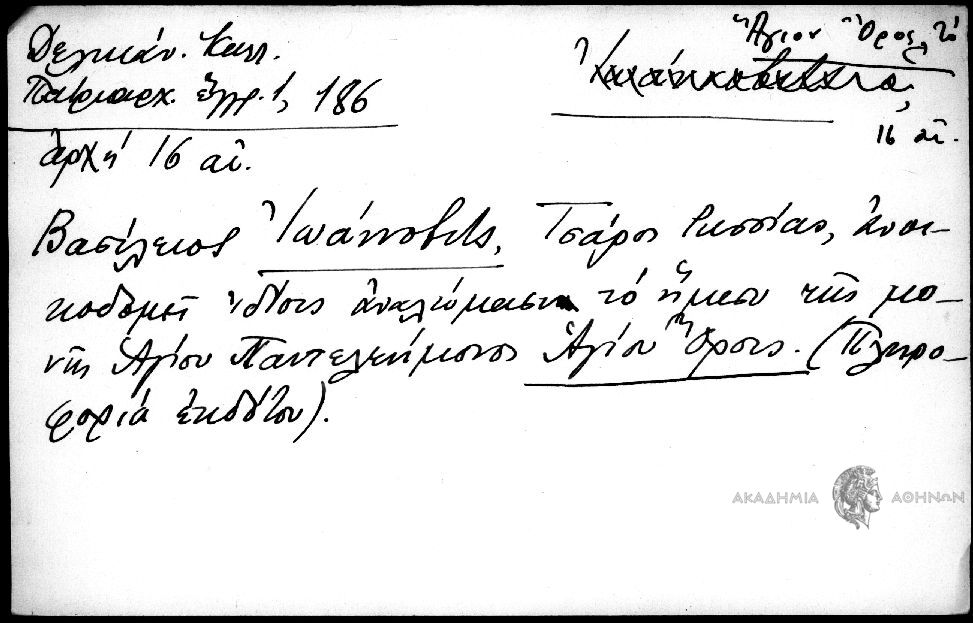 Δελικάν. Καλλ.
Πατριαρχ. ἔγγρ. 1, 186
ἀρχή 16 αἰ.
Ἅγιον Ὄρος, τό
16 αἰ.
Βασίλειος Ἰωάννοβιτς, Τσάρος Ρωσσίας, ἀνοι-
κοδομεῖ ἰδίοις ἀναλώμασιν τό ἥμισυ τῆς μο-
νῆς Ἁγίου Παντελεήμονος Ἁγίου Ὄρους. (Πληρο-
φορία ἐκδότου).
ΑΚΑΔΗΜΙΑ ΑΘΗΝΩΝ